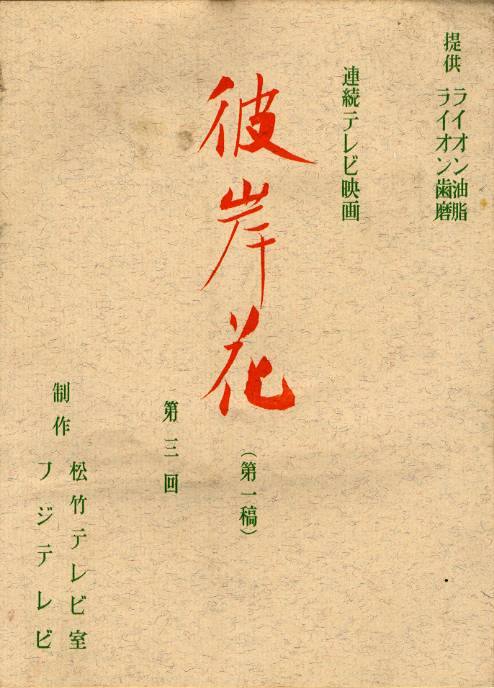 提供 ライオン油脂
ライオン歯磨
連続テレビ映画
彼岸花
(第一稿)
第三回
制作 松竹テレビ室
フジテレビ